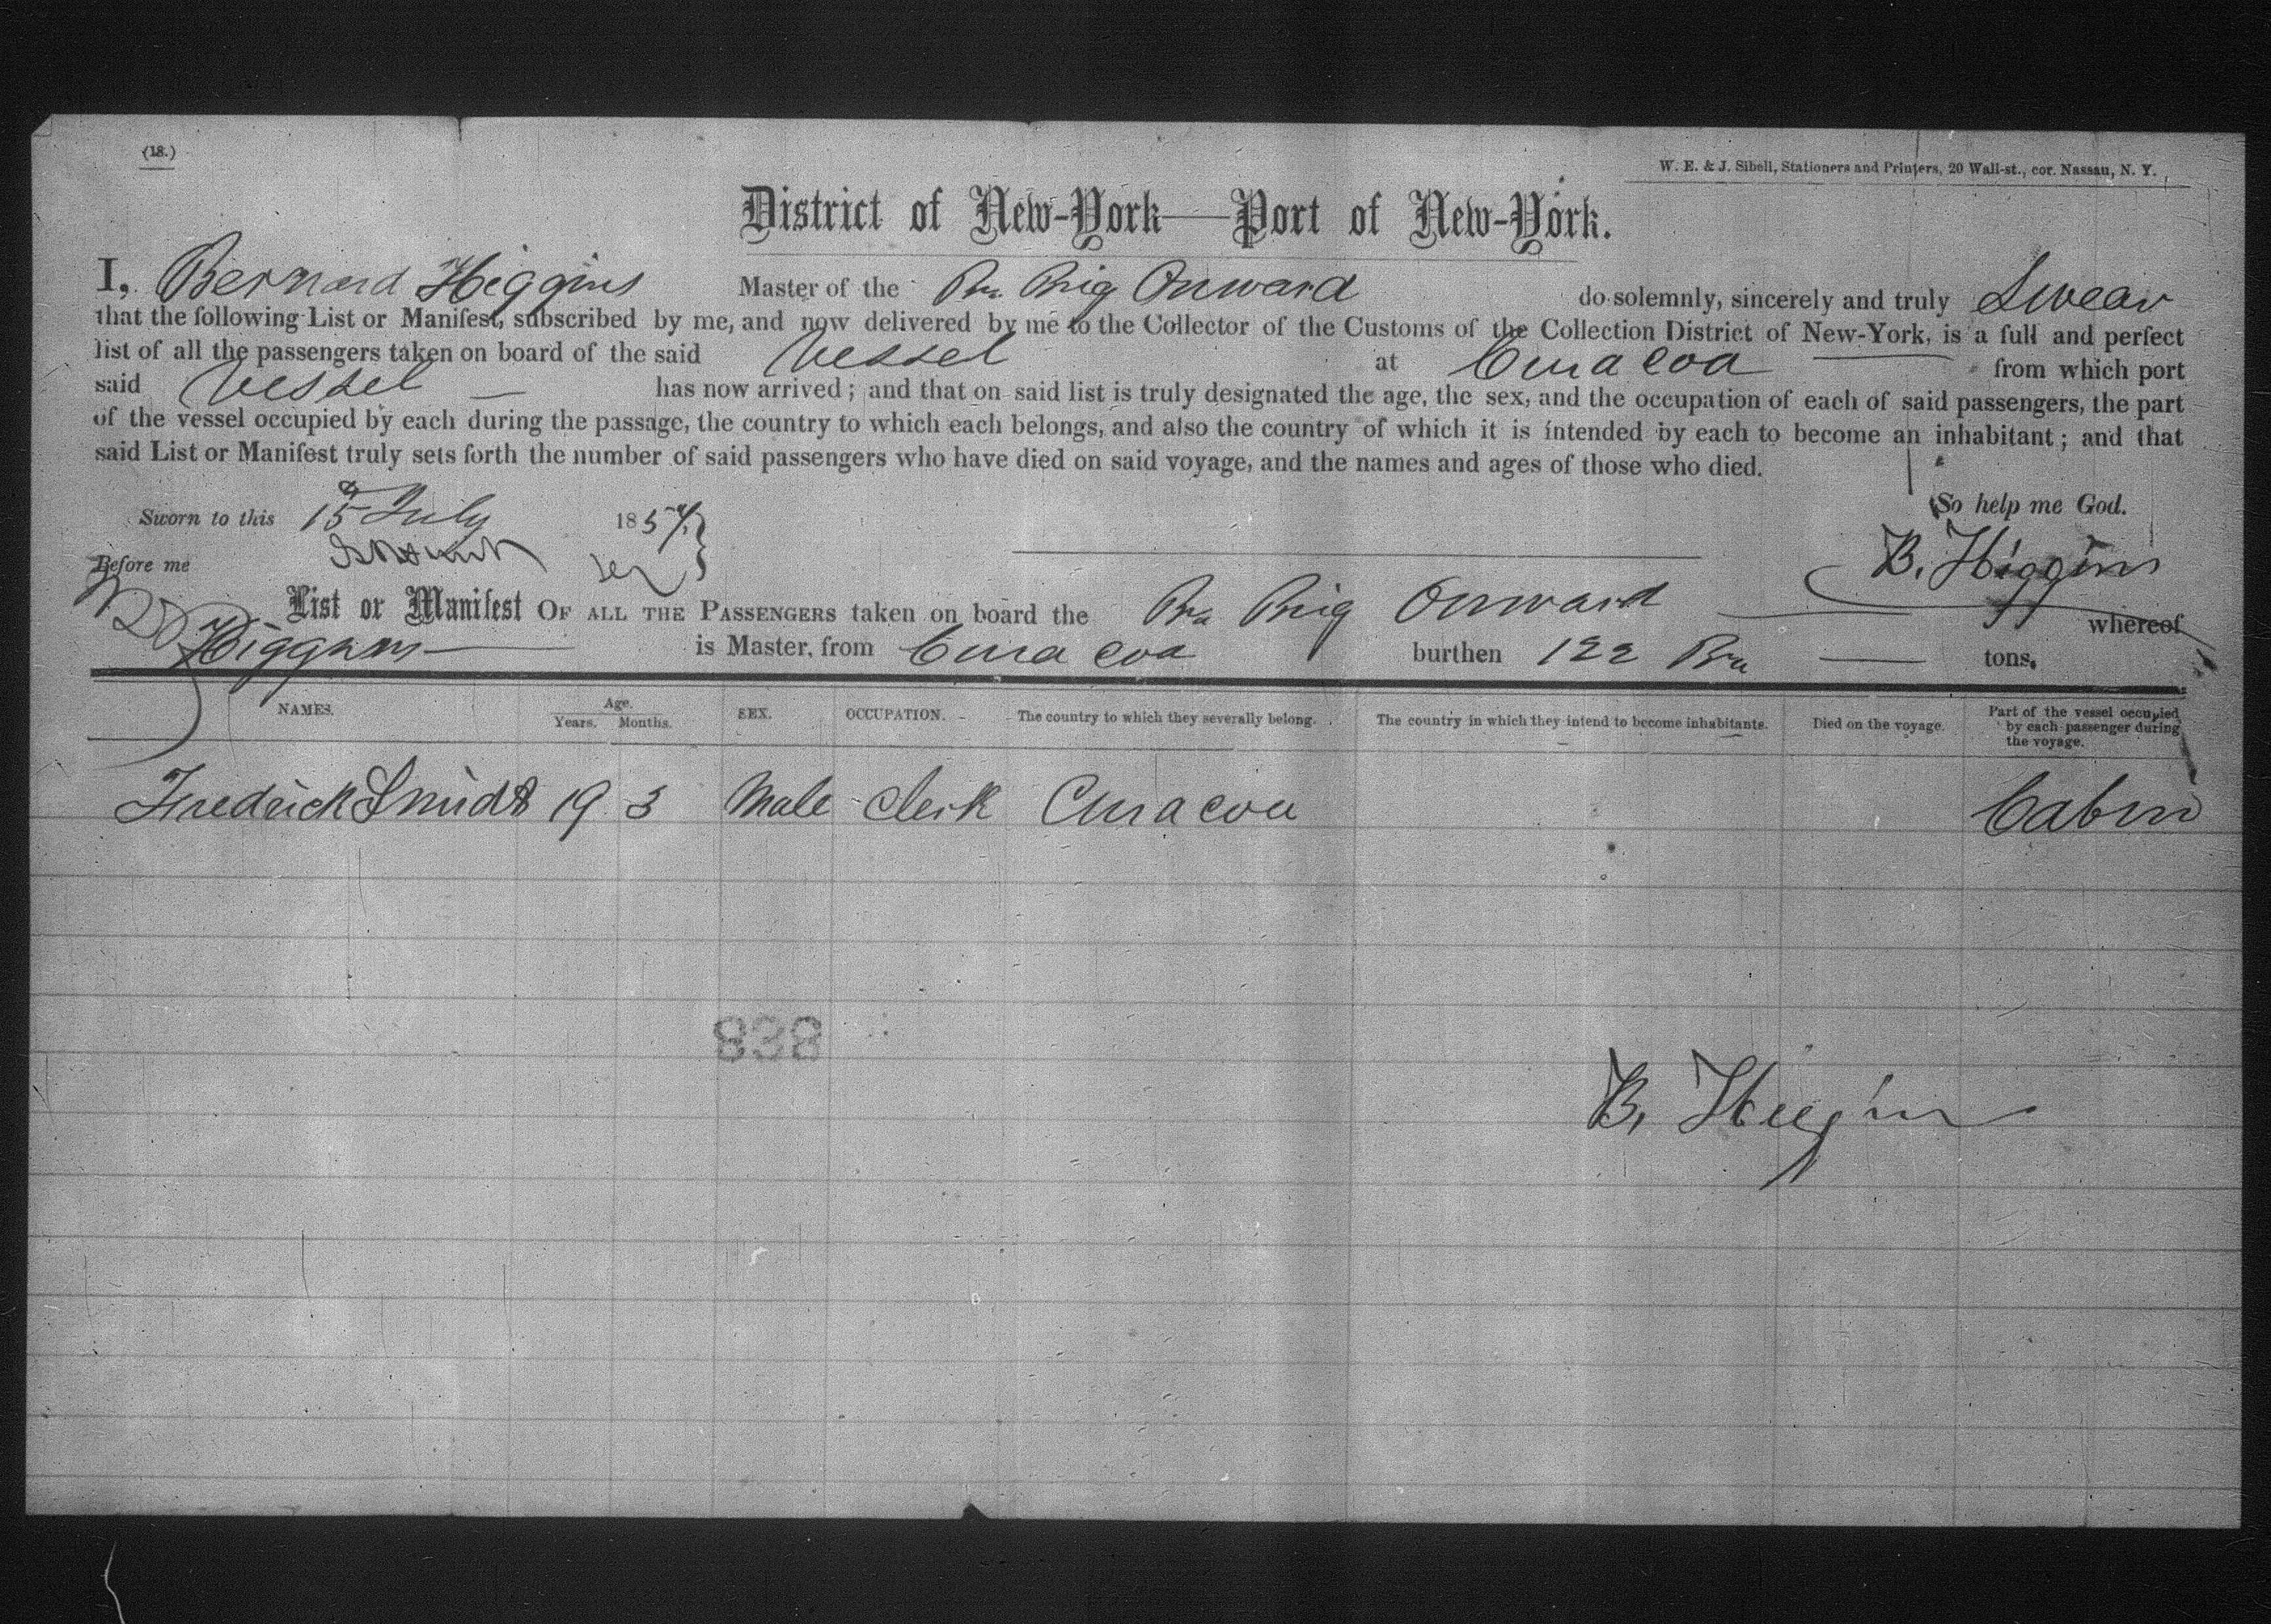 (18.)
W. E. & J. Sibell, Stationers and Printers, 20 Wall-st., cor. Nassau, N. Y.
District of New-York—Port of New-York.
I, Bernard Higgins Master of the Br. Brig Onward do solemnly, sincerely and truly Swear
that the following List or Manifest, subscribed by me, and now delivered by me to the Collector of the Customs of the Collection District of New-York, is a full and perfect
list of all the passengers taken on board of the said Vessel at Curacoa from which port
said Vessel has now arrived; and that on said list is truly designated the age, the sex, and the occupation of each of said passengers, the part
of the vessel occupied by each during the passage, the country to which each belongs, and also the country of which it is intended by each to become an inhabitant; and that
said List or Manifest truly sets forth the number of said passengers who have died on said voyage, and the names and ages of those who died.
So help me God.
Sworn to this 15 July 1854
Before me
B. Higgins
List or Manifest OF ALL THE PASSENGERS taken on board the Br Brig Onward whereof
Higgins is Master, from Curacoa burthen 122 tons.
NAMES. Age. Years. Months. SEX. OCCUPATION. The country to which they severally belong. The country in which they intend to become inhabitants. Died on the voyage. Part of the vessel occupied by each passenger during the voyage.
Fredrick Smidt 19 3 Male Clerk Curacoa Cabin
838
B. Higgins